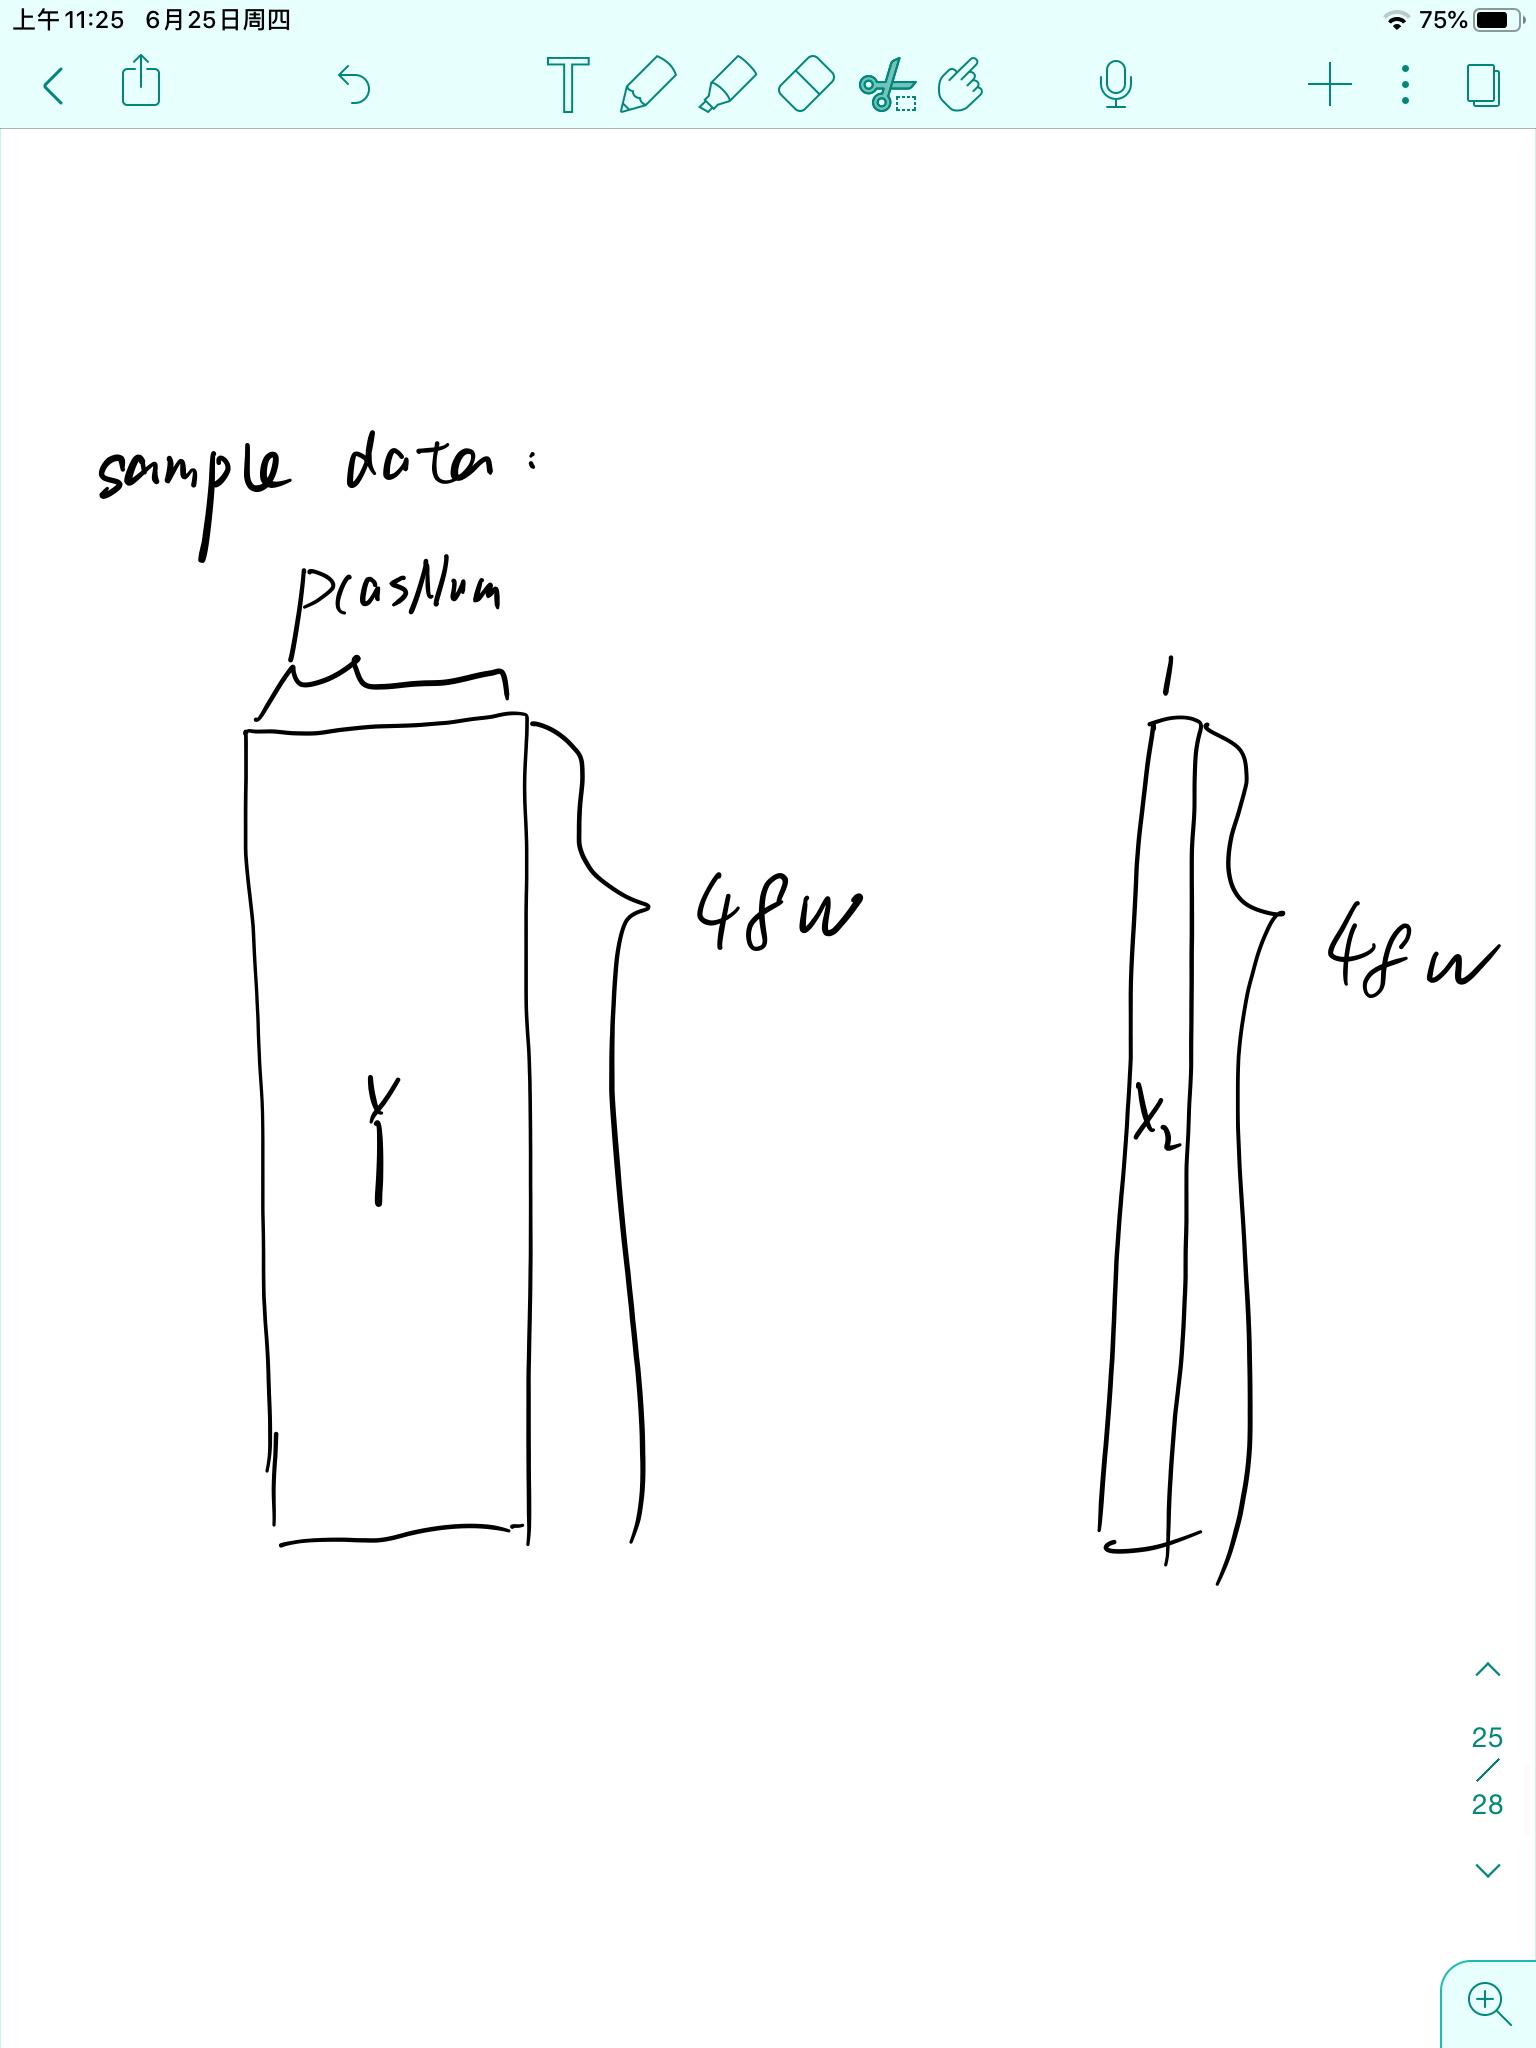 上午11:25 6月25日周四
75%
T
sample data:
pcasNum
1
48w
48w
Y
X₂
25
/
28